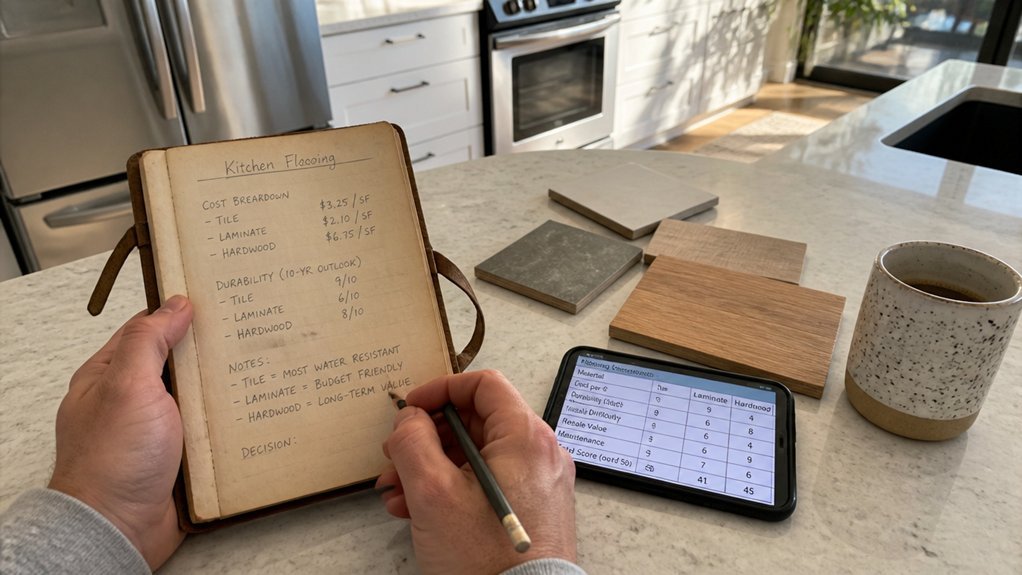 Kitchen Flooing
COST BREARDOWN
– TILE $3.25 / SF
– LAMINATE $2.10 / SF
– HARDWOOD $6.75 / SF
DURABILITY (10-YR OUTLOOK)
– TILE 9/10
– LAMINATE 6/10
– HARDWOOD 8/10
NOTES:
– TILE = MOST WATER RESISTANT
– LAMINATE = BUDGET FRIENDLY
– HARDWOOD = LONG-TERM VALUE
DECISION:
Material Laminate Hardwood
9 4
Durability 6 8
Difficulty 6 4
Value 4 9
7 6
Score 41 45